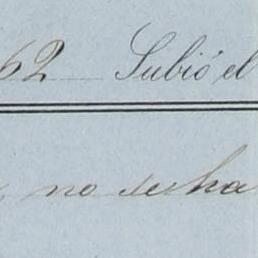 62 Subió el
no se ha